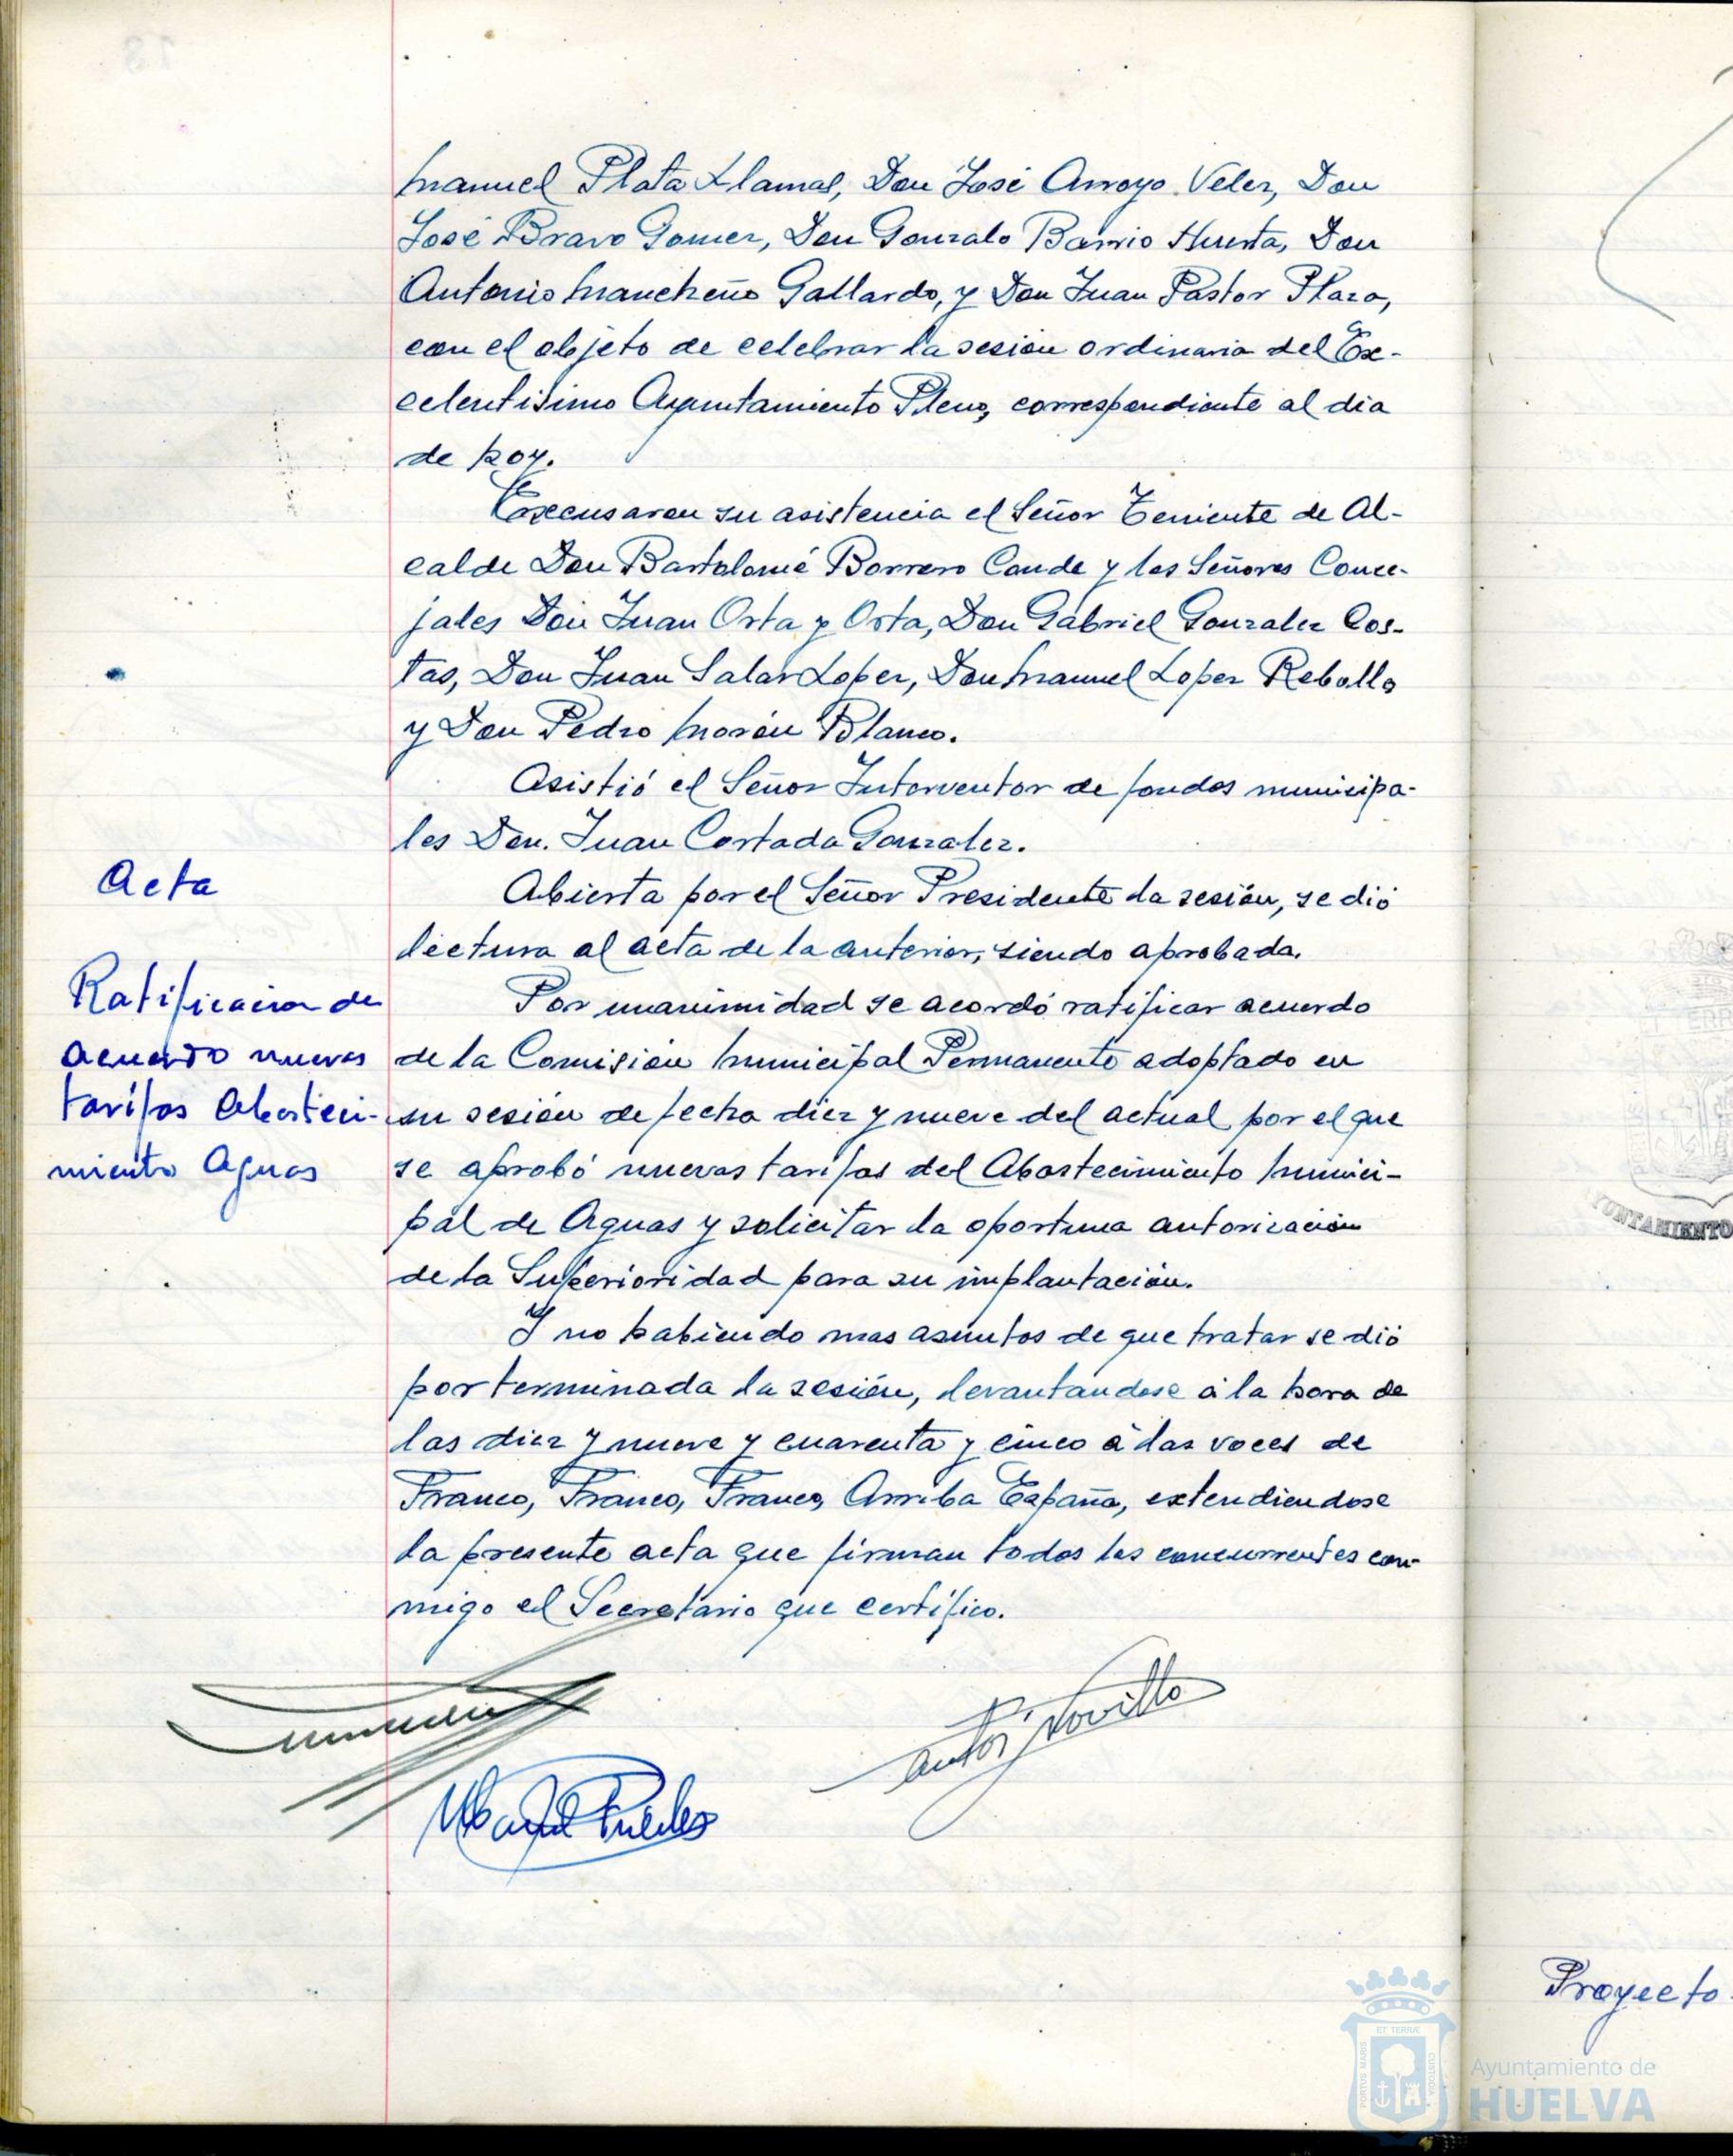 Manuel Plata Llamas, Don José Arroyo Velez, Don
José Bravo Gomez, Don Gonzalo Barrio Huerta, Don
Antonio Mancheño Gallardo, y Don Juan Pastor Plaza,
con el objeto de celebrar la sesión ordinaria del Ex-
celentisimo Ayuntamiento Pleno, correspondiente al dia
de hoy.
Excusaron su asistencia el Señor Teniente de Al-
calde Don Bartolomé Borrero Conde y los Señores Conce-
jales Don Juan Orta y Orta, Don Gabriel Gonzalez Cos-
tas, Don Juan Salas Lopez, Don Manuel Lopez Rebollo
y Don Pedro Morón Blanco.
Asistió el Señor Interventor de fondos municipa-
les Don. Juan Cortada Gonzalez.
Acta
Abierta por el Señor Presidente la sesión, se dió
lectura al acta de la anterior, siendo aprobada.
Ratificacion de
acuerdo nuevas
tarifas Abasteci-
miento Aguas
Por unanimidad se acordó ratificar acuerdo
de la Comisión Municipal Permanente adoptado en
su sesión de fecha diez y nueve del actual por el que
se aprobó nuevas tarifas del Abastecimiento Munici-
pal de Aguas y solicitar la oportuna autorización
de la Superioridad para su implantación.
Y no habiendo mas asuntos de que tratar se dió
por terminada la sesión, levantandose á la hora de
las diez y nueve y cuarenta y cinco á las voces de
Franco, Franco, Franco, Arriba España, extendiendose
la presente acta que firman todos los concurrentes con-
migo el Secretario que certifico.
Proyecto
ET TERRÆ
PORTUS MARIS
CUSTODIA
Ayuntamiento de
HUELVA